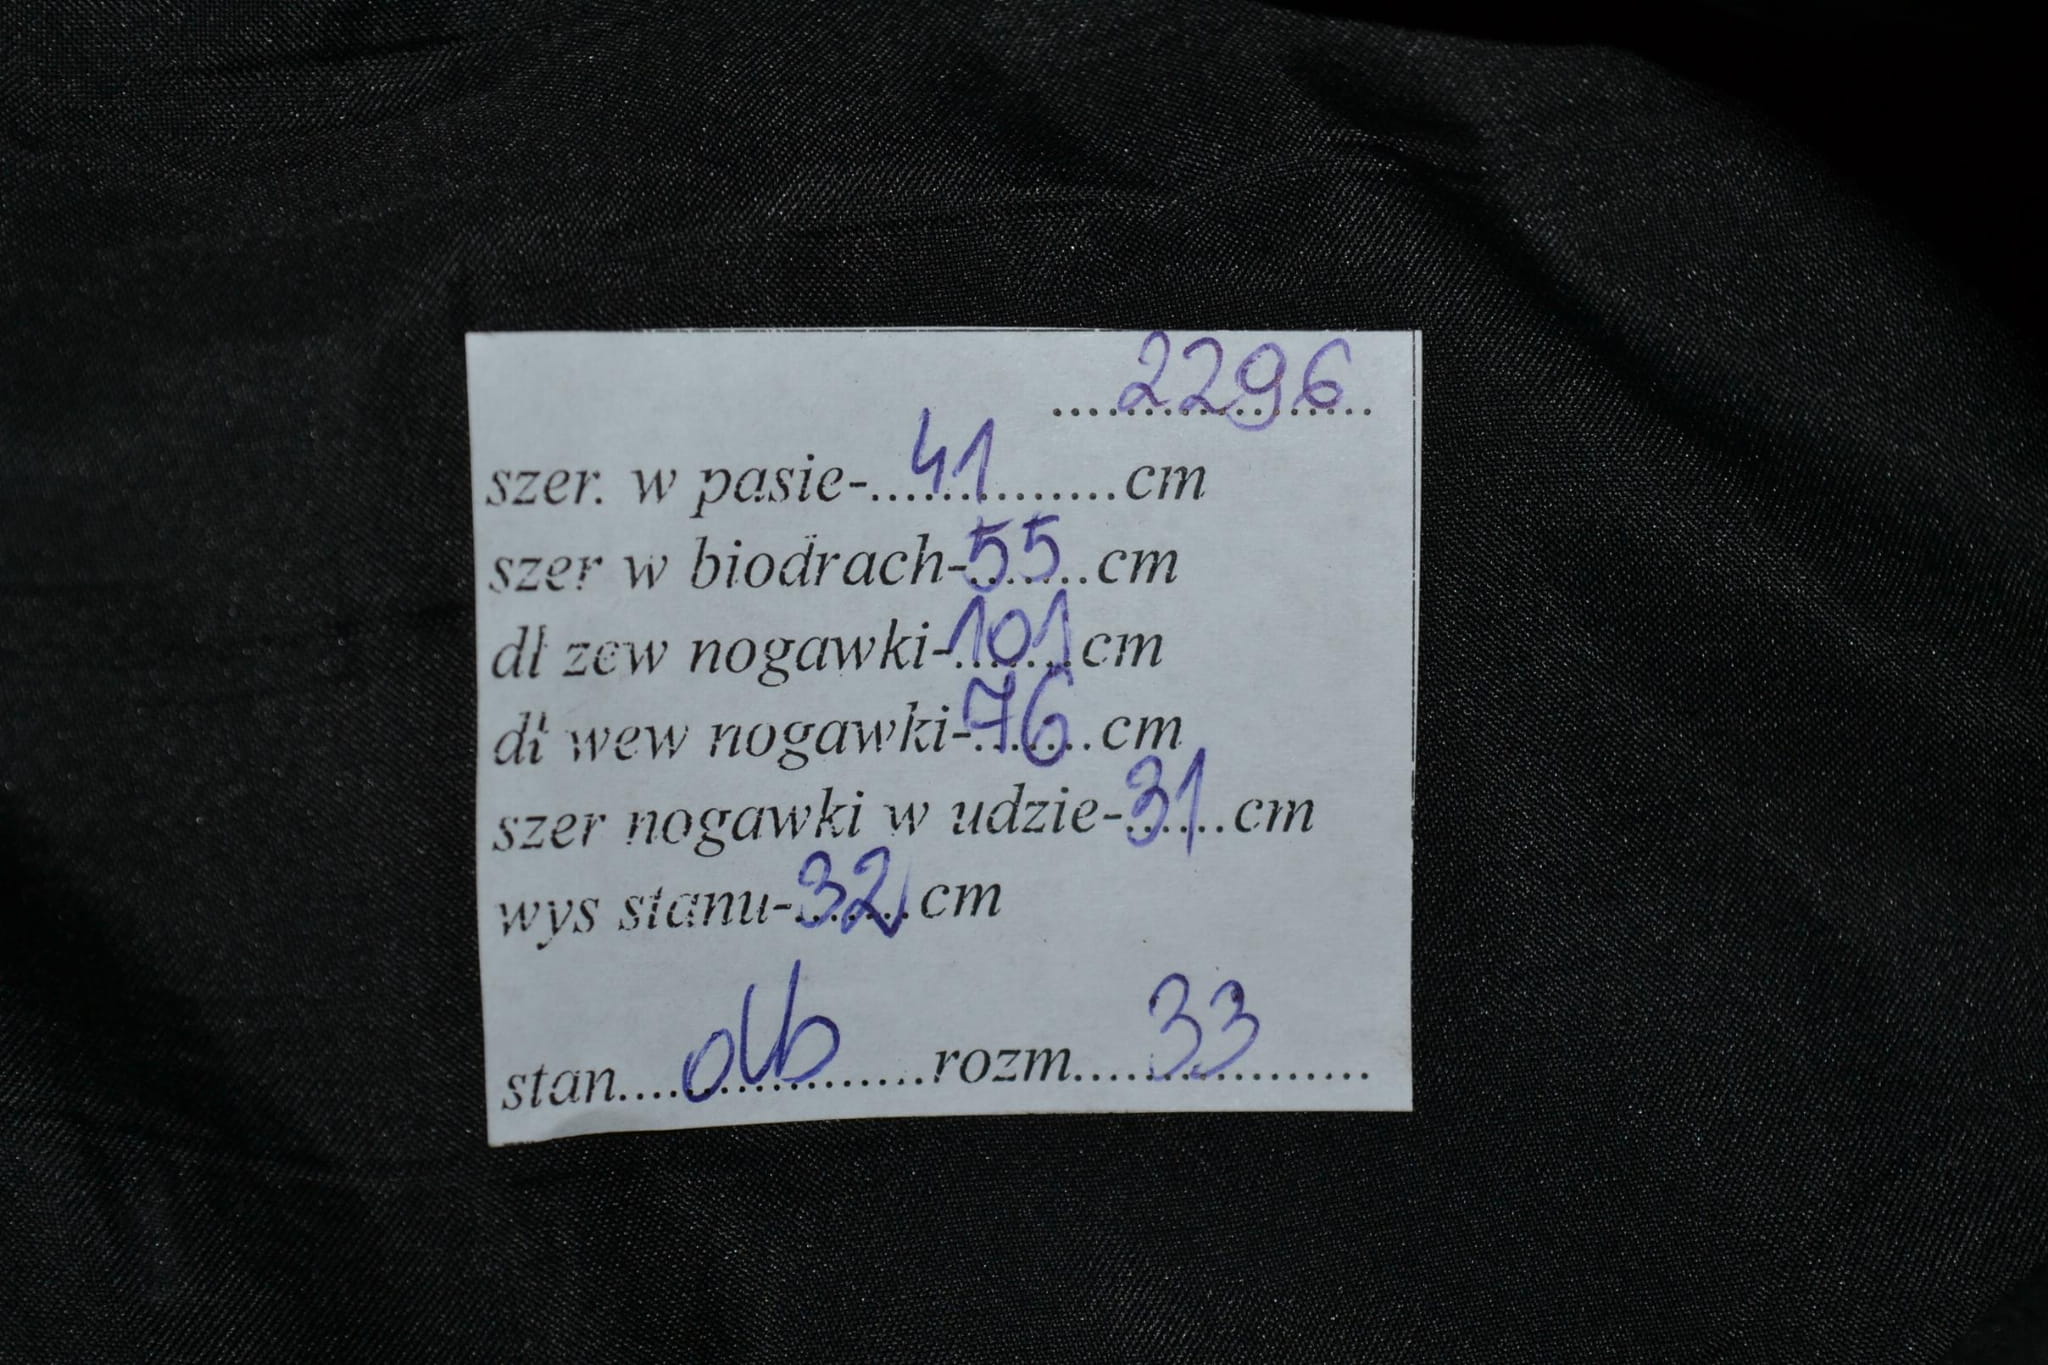 ....2296....
szer. w pasie-....41....cm
szer w biodrach-55....cm
dł zew nogawki-101cm
dł wew nogawki-76...cm
szer nogawki w udzie-31..cm
wys stanu-32.cm
stan....db......rozm....33......